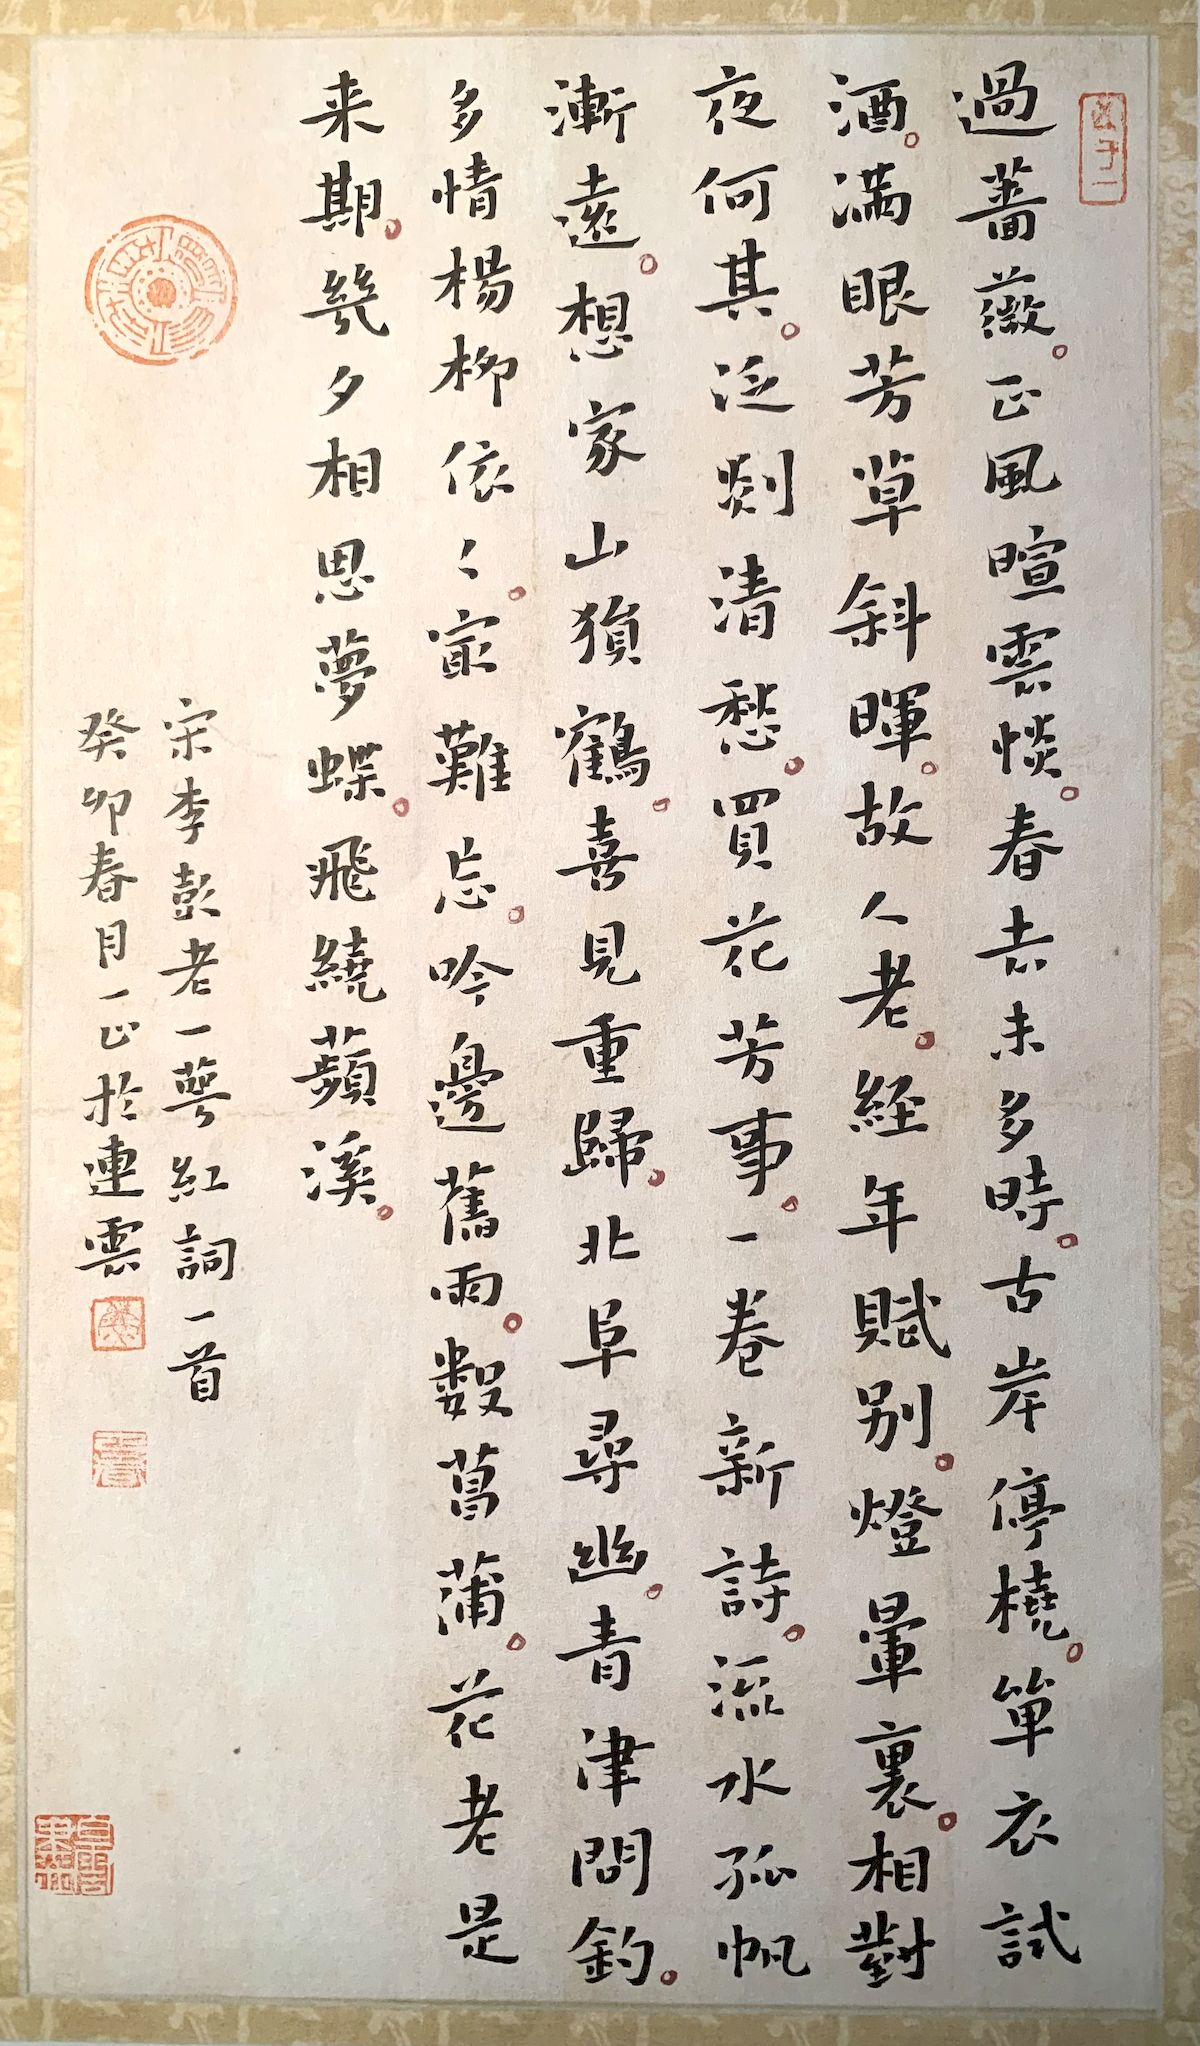 過薔薇。正風暄雲惔。春去未多時。古岸停橈。單衣試
酒。满眼芳草斜暉。故人老。経年賦別。燈暈裏。相對
夜何其。泛剡清愁。買花芳事。一卷新詩。流水孤帆
漸遠。想家山猿鶴。喜見重歸。北阜尋幽。青津問釣。
多情楊柳依〻。寂難忘。吟邊舊雨。數菖蒲。花老是
来期。幾夕相思夢蝶。飛繞蘋溪。
宋李彭老一萼紅詞一首
癸卯春月一正於連雲